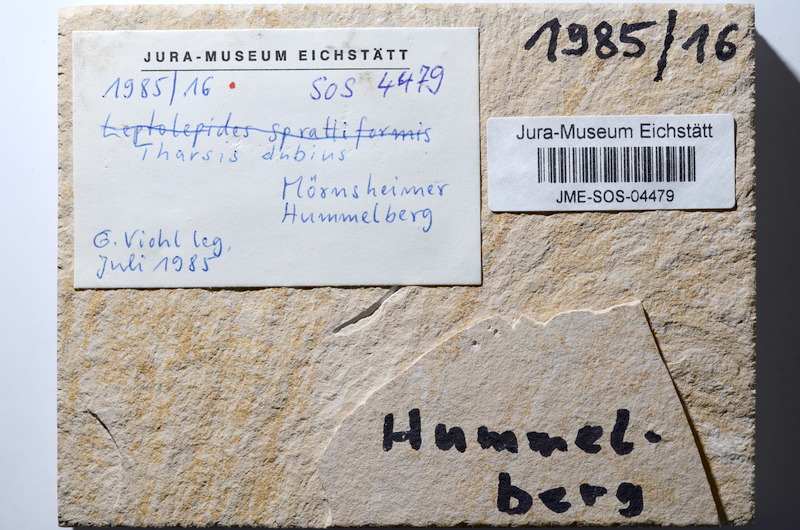 1985/16
JURA-MUSEUM EICHSTÄTT
1985/16 SOS 4479
Leptolepides sprattiformis
Tharsis dubius
Mörnsheimer
Hummelberg
G. Viohl leg.
Juli 1985
Jura-Museum Eichstätt
JME-SOS-04479
Hummel-
berg